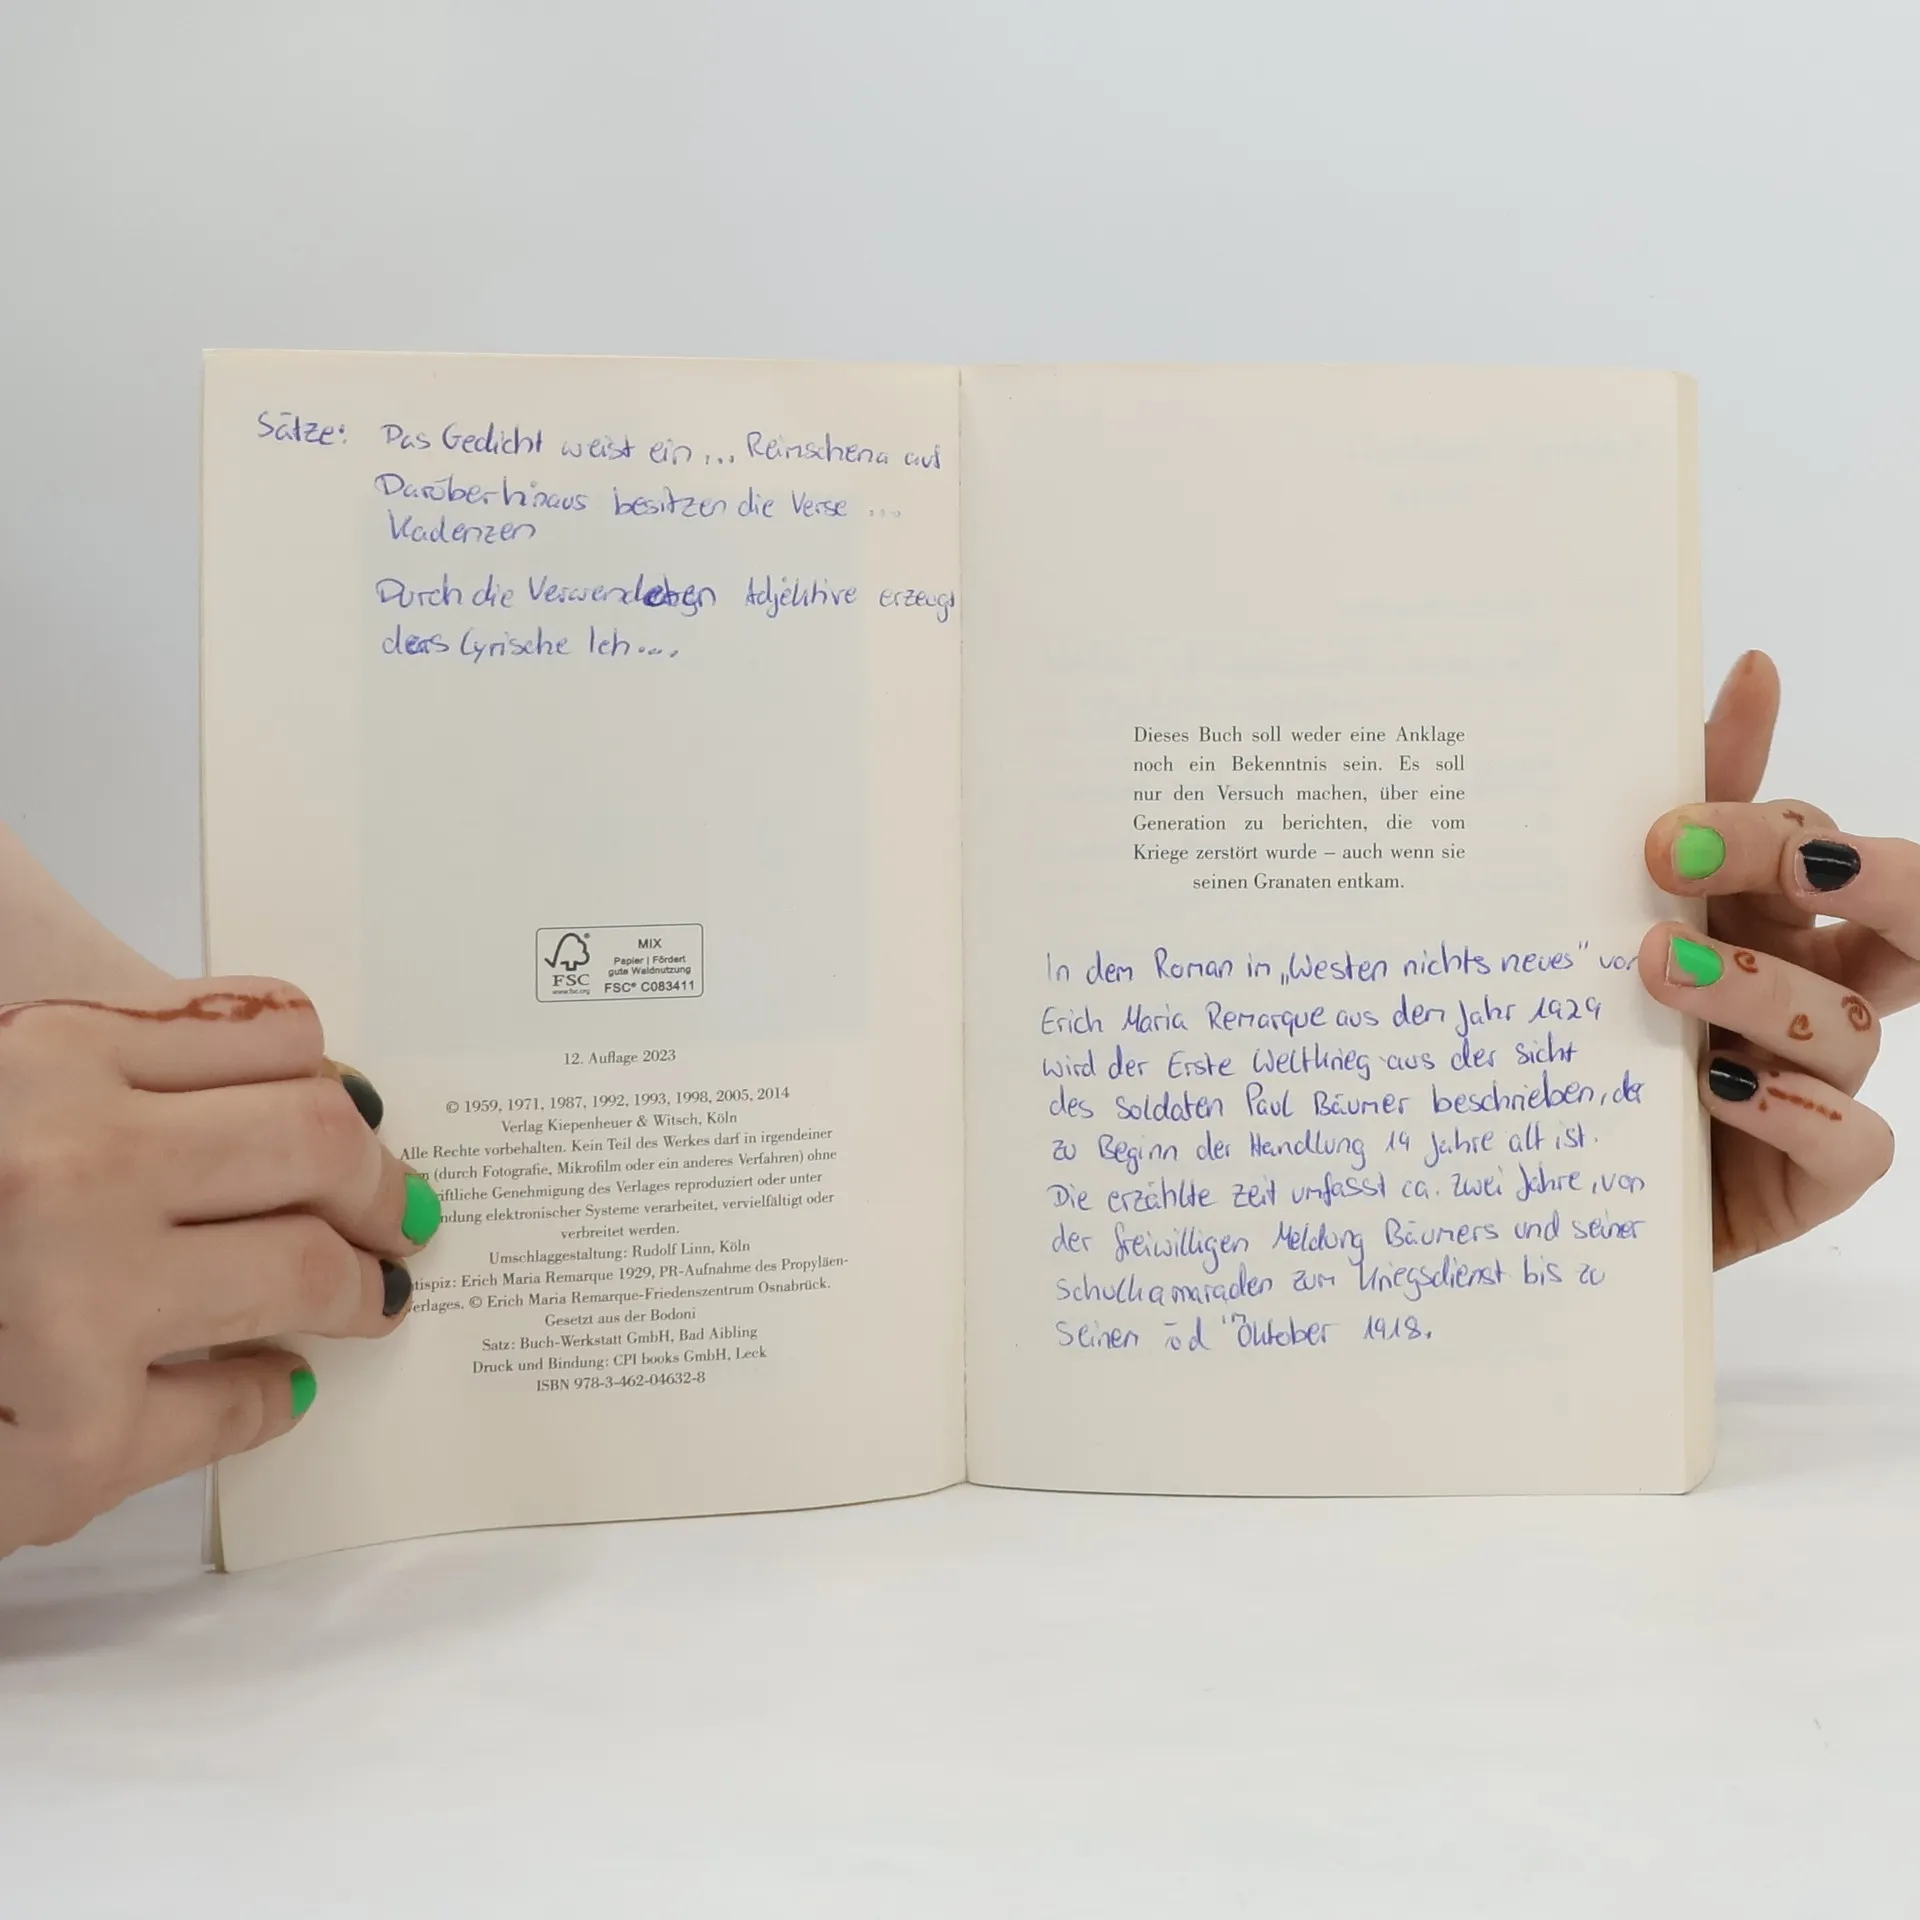 Sätze: Das Gedicht weist ein ... Reimschema auf
Darüber hinaus besitzen die Verse ...
Kadenzen
Durch die Adjektive erzeugt
das Lyrische Ich ...
FSC
www.fsc.org
MIX
Papier | Fördert
gute Waldnutzung
FSC® C083411
12. Auflage 2023
© 1959, 1971, 1987, 1992, 1993, 1998, 2005, 2014
Verlag Kiepenheuer & Witsch, Köln
Alle Rechte vorbehalten. Kein Teil des Werkes darf in irgendeiner
(durch Fotografie, Mikrofilm oder ein anderes Verfahren) ohne
iftliche Genehmigung des Verlages reproduziert oder unter
ndung elektronischer Systeme verarbeitet, vervielfältigt oder
verbreitet werden.
Umschlaggestaltung: Rudolf Linn, Köln
tispiz: Erich Maria Remarque 1929, PR-Aufnahme des Propyläen-
erlages. © Erich Maria Remarque-Friedenszentrum Osnabrück.
Gesetzt aus der Bodoni
Satz: Buch-Werkstatt GmbH, Bad Aibling
Druck und Bindung: CPI books GmbH, Leck
ISBN 978-3-462-04632-8
Dieses Buch soll weder eine Anklage
noch ein Bekenntnis sein. Es soll
nur den Versuch machen, über eine
Generation zu berichten, die vom
Kriege zerstört wurde – auch wenn sie
seinen Granaten entkam.
In dem Roman im „Westen nichts neues" von
Erich Maria Remarque aus dem Jahr 1929
wird der Erste Weltkrieg aus der Sicht
des Soldaten Paul Bäumer beschrieben, der
zu Beginn der Handlung 19 Jahre alt ist.
Die erzählte Zeit umfasst ca. zwei Jahre, von
der freiwilligen Meldung Bäumers und seiner
Schulkamaraden zum Kriegsdienst bis zu
seinem Oktober 1918.